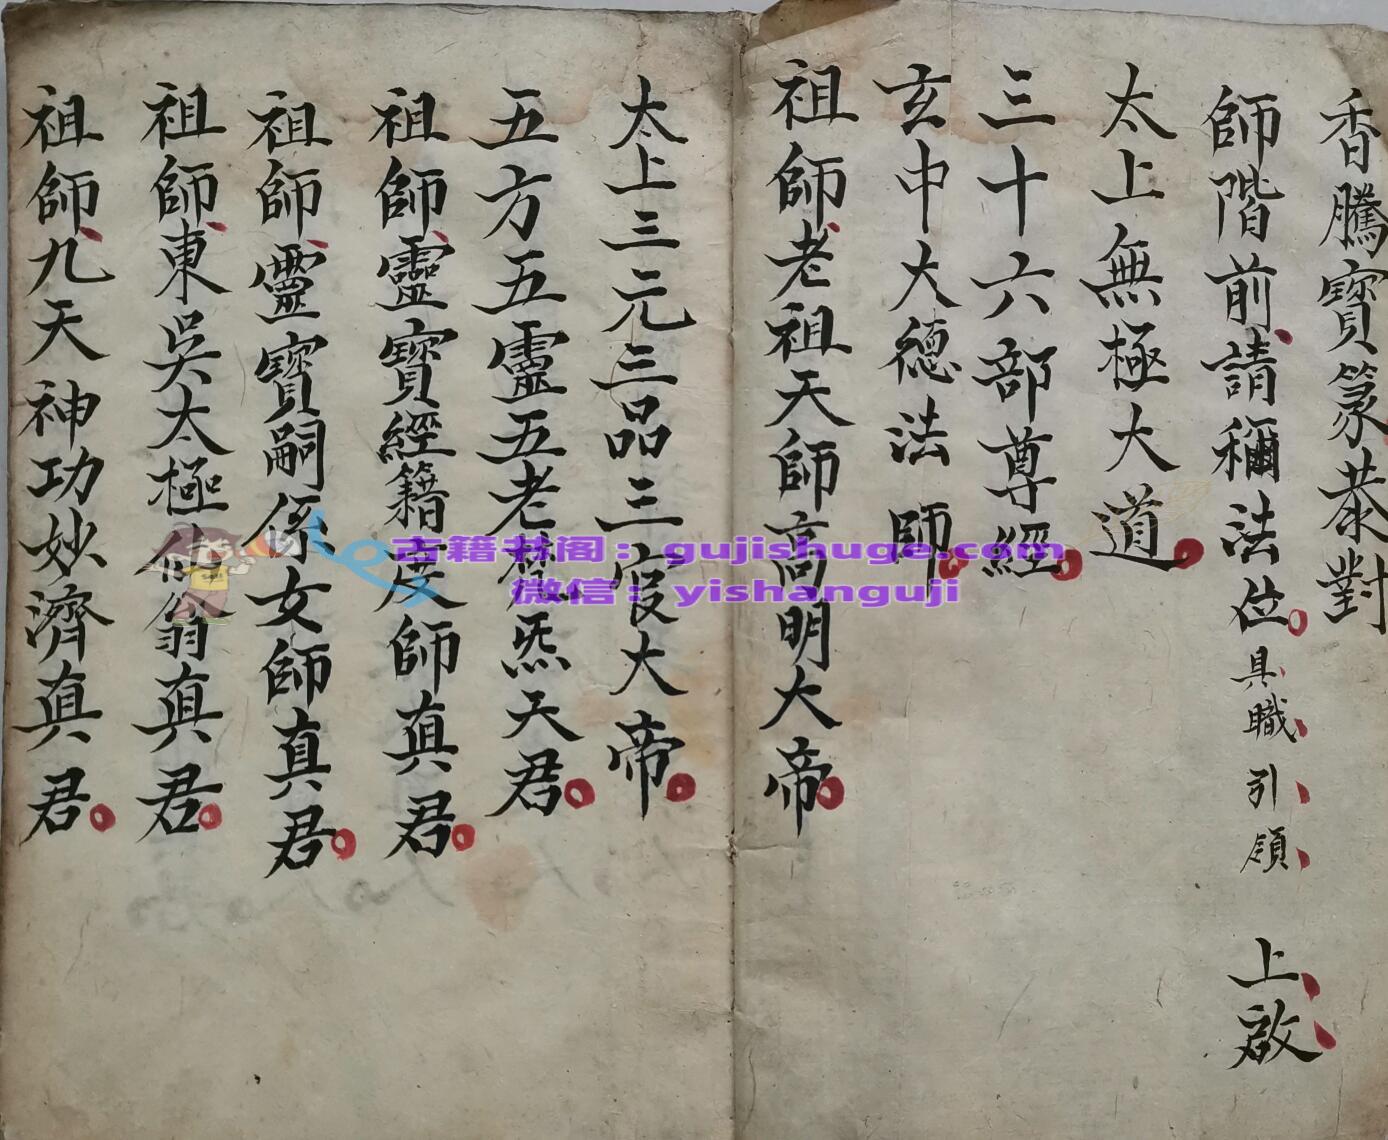 香騰寶篆恭對
師階前請稱法位具職引領 上啟
太上無極大道
三十六部尊經
玄中大德法師
祖師老祖天師高明大帝
太上三元三品三官大帝
五方五靈五老炁天君
祖師靈寶經籍度師真君
祖師靈寶嗣係女師真君
祖師東吳太極仙翁真君
祖師九天神功妙濟真君
古籍书阁：gujishuge.com
微信：yishanguji